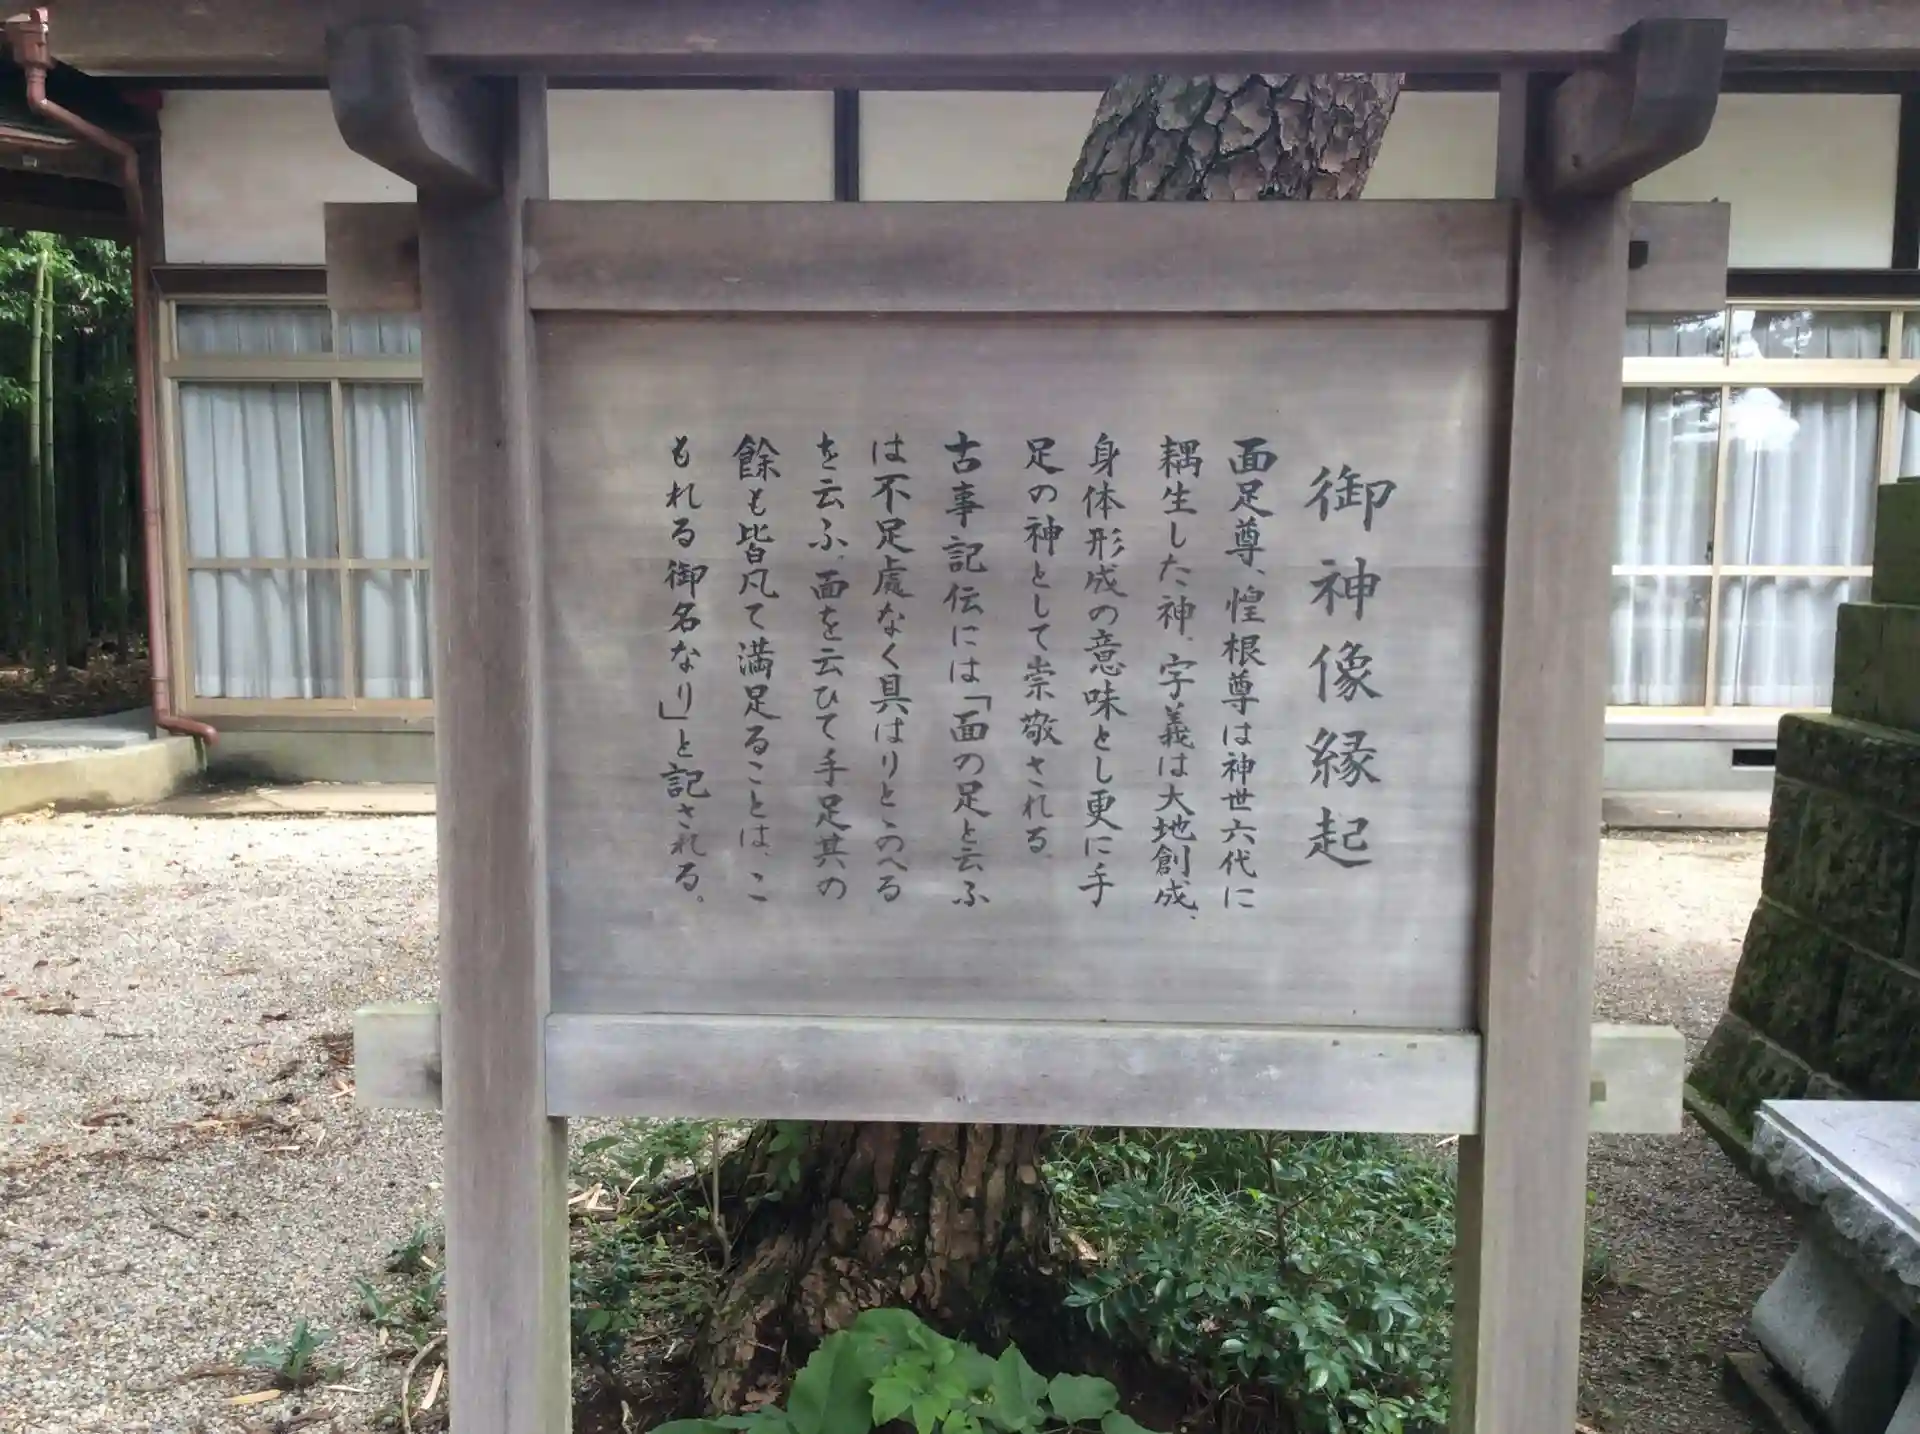 御神像縁起
面足尊、惶根尊は神世六代に
耦生した神。字義は大地創成、
身体形成の意味とし更に手
足の神として崇敬される。
古事記伝には「面の足と云ふ
は不足處なく具はりとゝのへる
を云ふ。面を云ひて手足其の
餘も皆凡て満足ることは、こ
もれる御名なり」と記される。